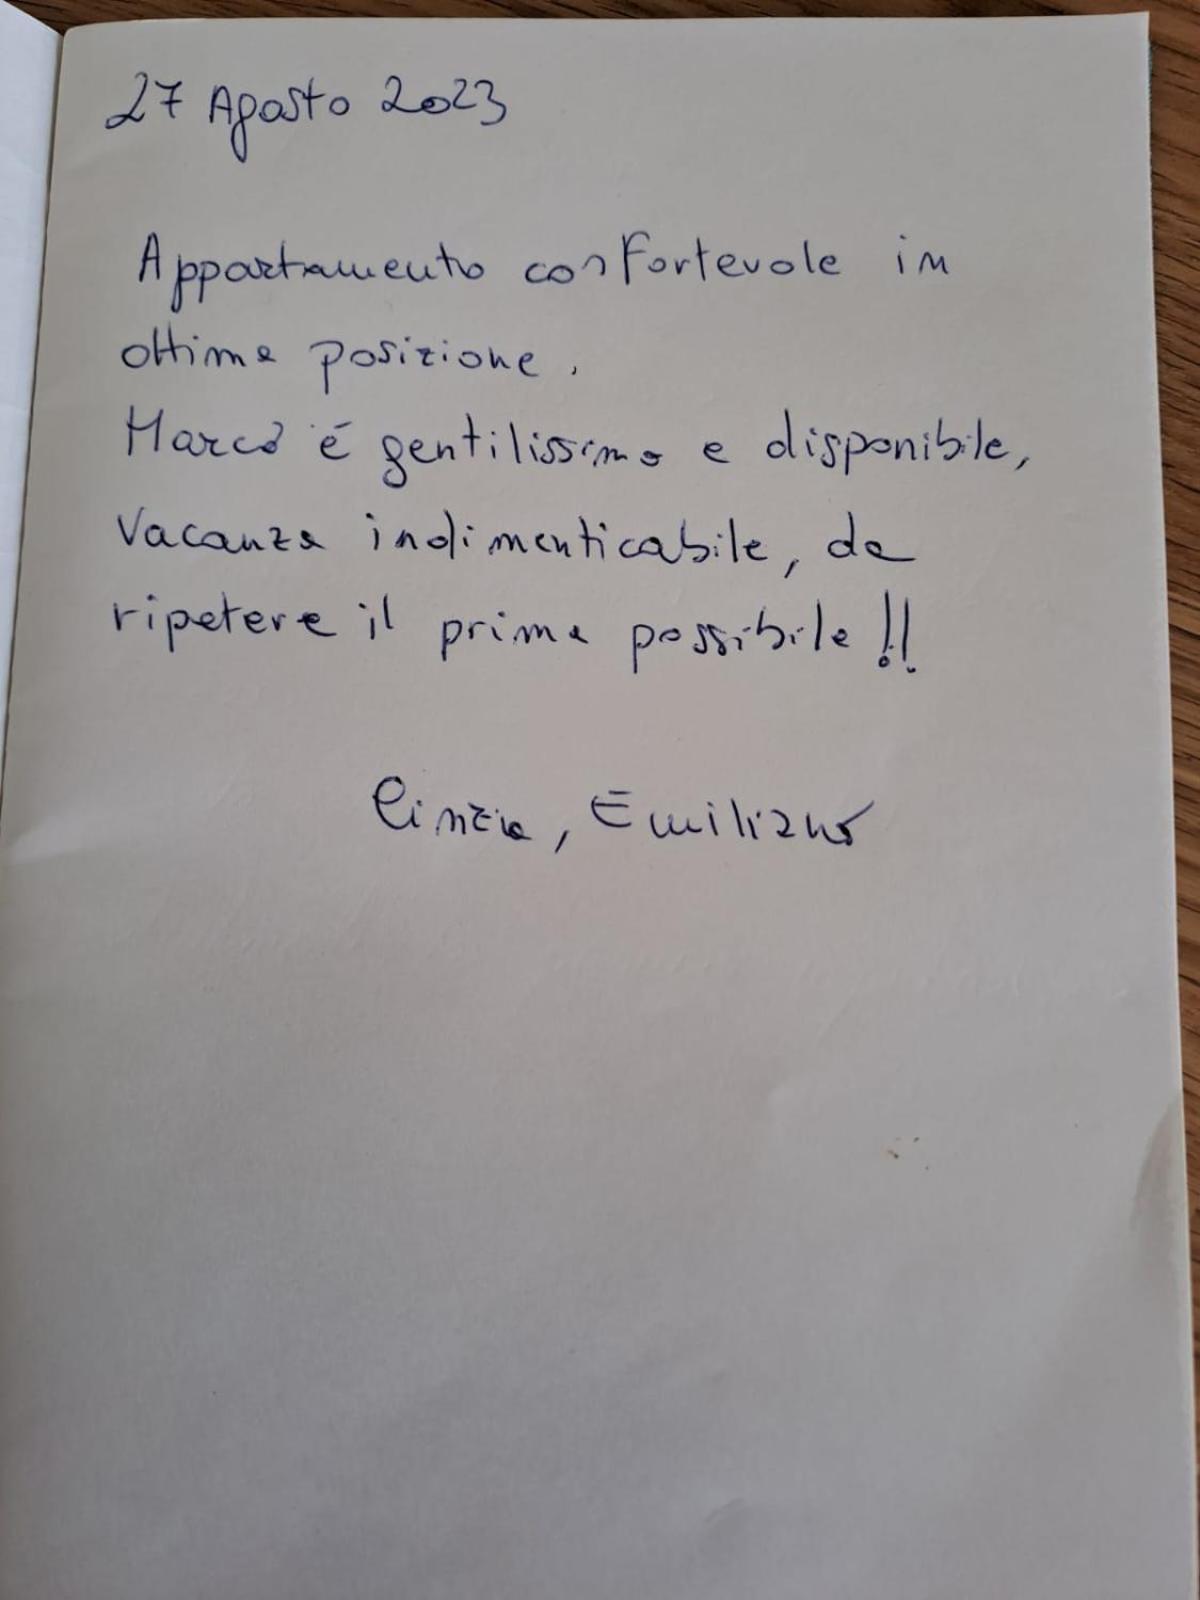 27 Agosto 2023
Appartamento confortevole in
ottima posizione.
Marco é gentilissimo e disponibile,
Vacanza indimenticabile, da
ripetere il prima possibile!!
Cinzia, Emiliano